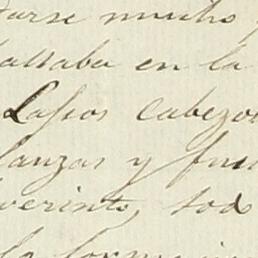 darse mucho y
allaba en la
Lasios cabezo
lanzas y fus
verinto, tod